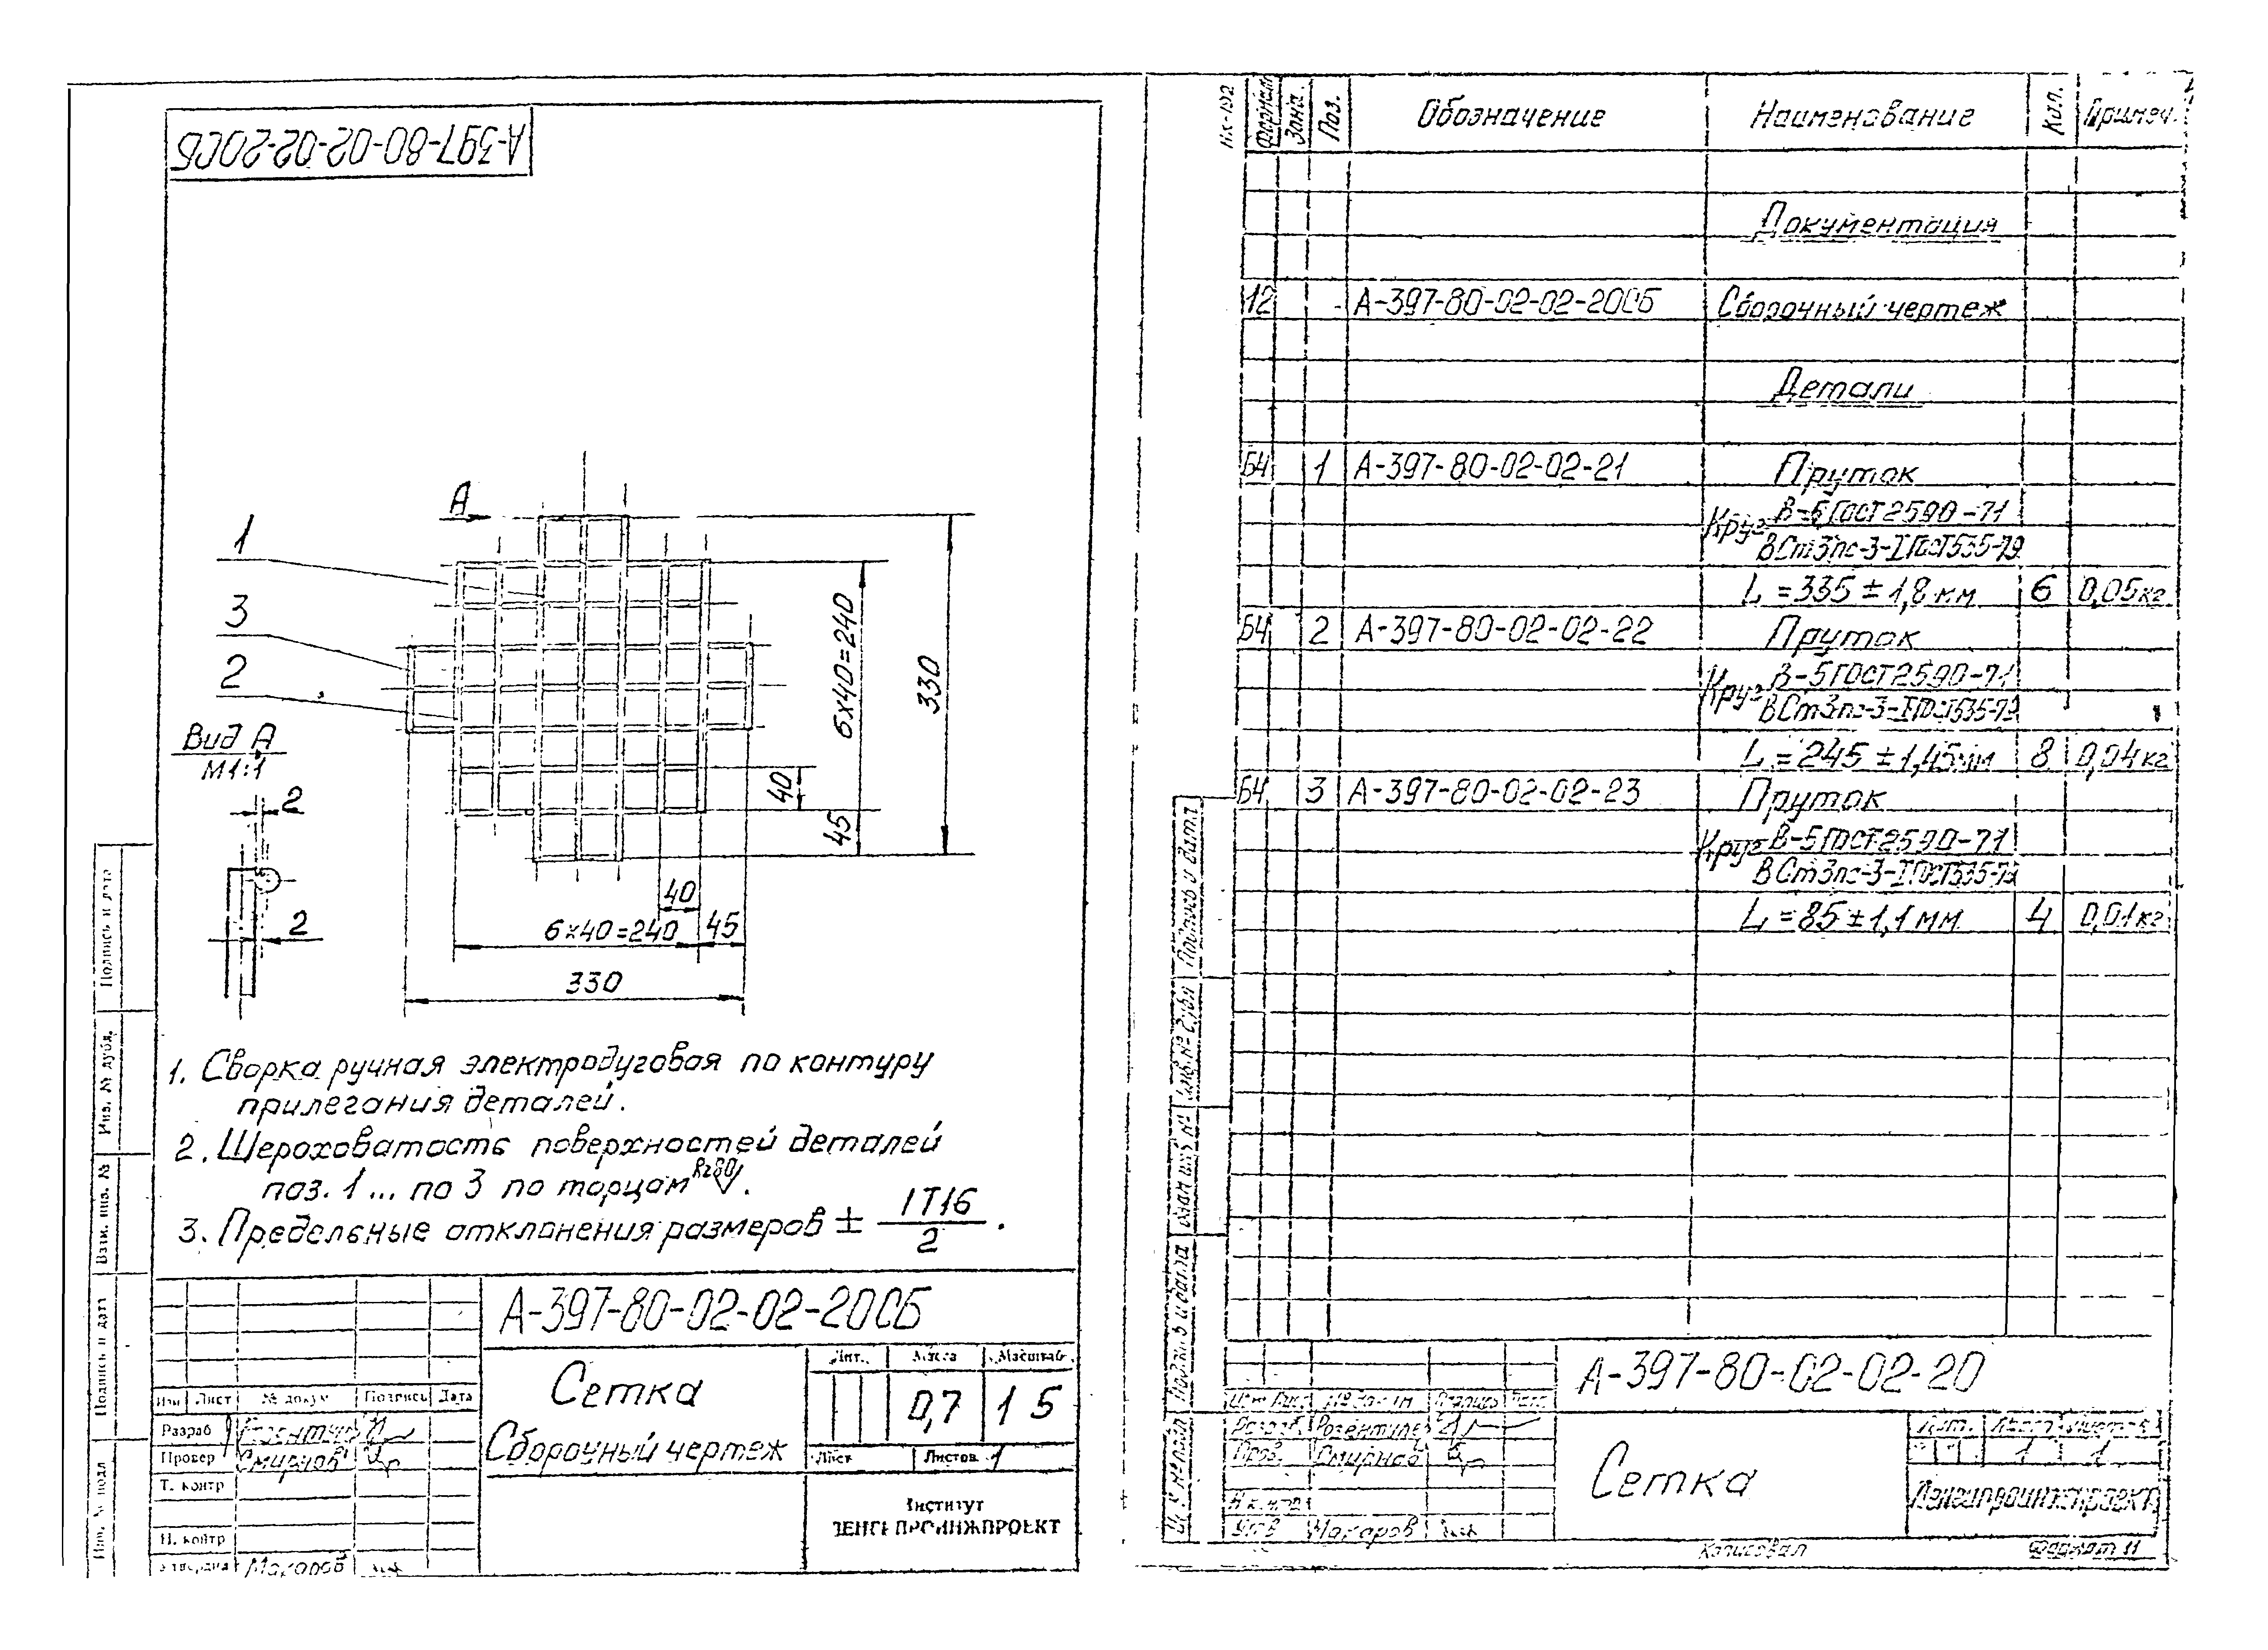 А-397-80-02-02-20СБ
А
1
3
2
Вид А
М1:1
2
2
6х40=240
330
40
45
40
6х40=240
45
330
1. Сварка ручная электродуговая по контуру
прилегания деталей.
2. Шероховатость поверхностей деталей
поз. 1 ... по 3 по торцам Rz80.
3. Предельные отклонения размеров ± IT16/2.
Подпись и дата
Инв. № дубл.
Взам. инв. №
Подпись и дата
Инв. № подл
А-397-80-02-02-20СБ
Сетка
Сборочный чертеж
Лит. Масса Масштаб
0,7 1 5
Лист Листов 1
Изм Лист № докум Подпись Дата
Разраб
Провер Смирнов
Т. контр
Н. контр
Утвердил Макаров
Институт
ЛЕНГИПРОИНЖПРОЕКТ
Формат Зона. Поз. Обозначение Наименование Кол. Примеч.
Документация
12 А-397-80-02-02-20СБ Сборочный чертеж
Детали
Б4 1 А-397-80-02-02-21 Пруток
Круг В-5 ГОСТ 2590-71
ВСт3пс-3-I ГОСТ 535-79
L = 335 ± 1,8 мм 6 0,05кг
Б4 2 А-397-80-02-02-22 Пруток
Круг В-5 ГОСТ 2590-71
ВСт3пс-3-I ГОСТ 535-79
L = 245 ± 1,45мм 8 0,04кг
Б4 3 А-397-80-02-02-23 Пруток
Круг В-5 ГОСТ 2590-71
ВСт3пс-3-I ГОСТ 535-79
L = 85 ± 1,1 мм 4 0,01кг
Подпись и дата
Инв.№ дубл
Взам инв №
Подпись и дата
А-397-80-02-02-20
Разраб. Розентуле
Пров. Смирнов
Н.контр
Утв Макаров
Сетка
Лит. Лист Листов
1 1
Ленгипроинжпроект
Копировал
Формат 11